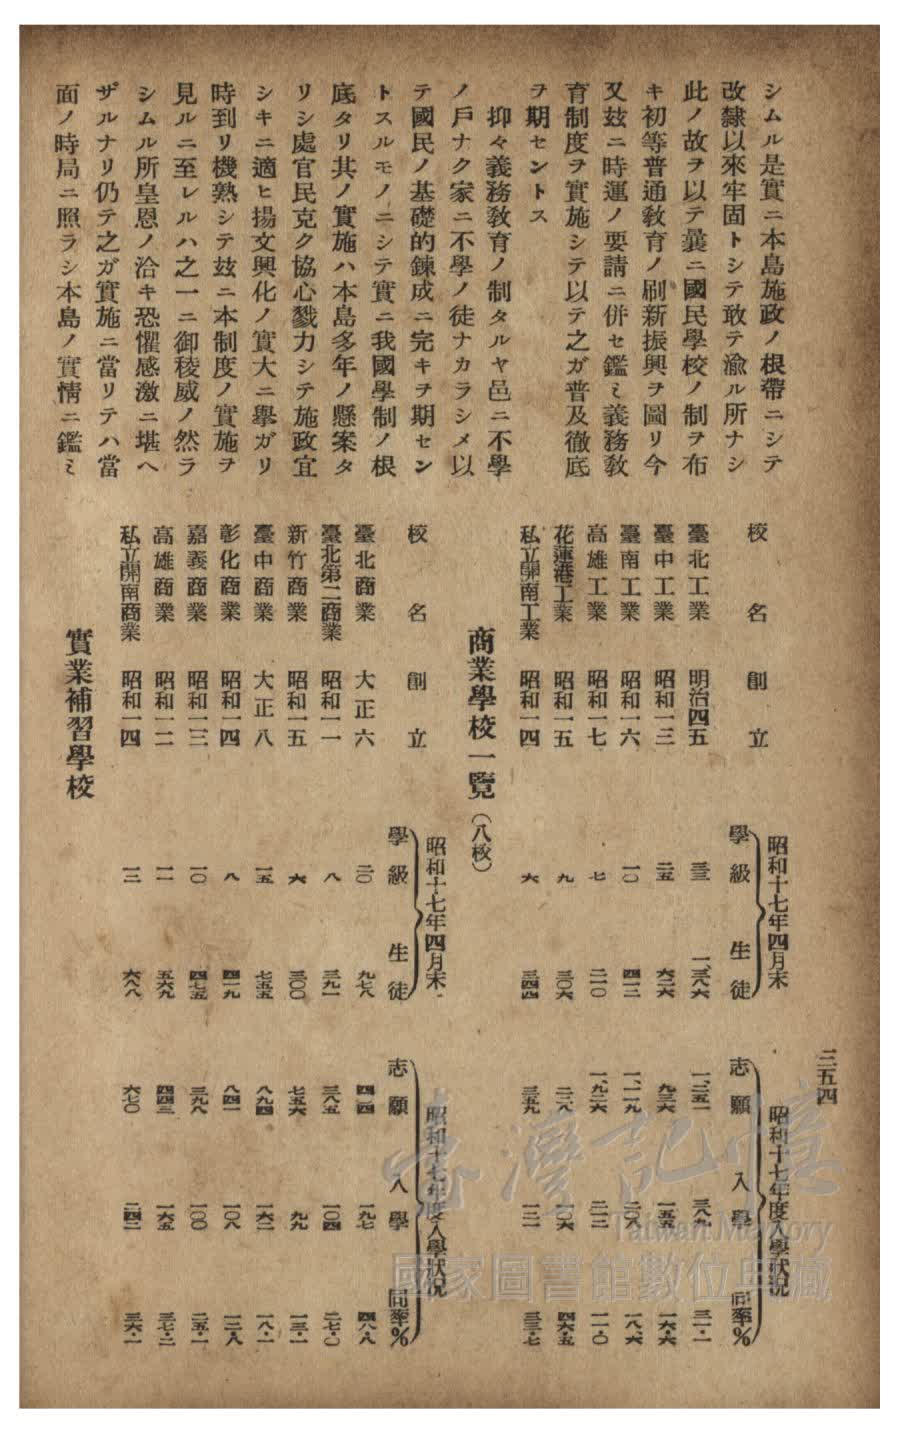 三五四
シムル是實ニ本島施政ノ根帶ニシテ
改隸以來牢固トシテ敢テ渝ル所ナシ
此ノ故ヲ以テ曩ニ國民學校ノ制ヲ布
キ初等普通敎育ノ刷新振興ヲ圖リ今
又玆ニ時運ノ要請ニ併セ鑑ミ義務敎
育制度ヲ實施シテ以テ之ガ普及徹底
ヲ期セントス
抑々義務敎育ノ制タルヤ邑ニ不學
ノ戶ナク家ニ不學ノ徒ナカラシメ以
テ國民ノ基礎的鍊成ニ完キヲ期セン
トスルモノニシテ實ニ我國學制ノ根
底タリ其ノ實施ハ本島多年ノ懸案タ
リシ處官民克ク協心戮力シテ施政宜
シキニ適ヒ揚文興化ノ實大ニ擧ガリ
時到リ機熟シテ玆ニ本制度ノ實施ヲ
見ルニ至レルハ之一ニ御稜威ノ然ラ
シムル所皇恩ノ洽キ恐懼感激ニ堪ヘ
ザルナリ仍テ之ガ實施ニ當リテハ當
面ノ時局ニ照ラシ本島ノ實情ニ鑑ミ
昭和十七年四月末 昭和十七年度入學狀況
校名 創立 學級 生徒 志願 入學 同率%
臺北工業 明治四五 三三 一、三八六 一、二五一 三八九 三一・一
臺中工業 昭和一三 二五 六二六 九三六 一五五 一六・六
臺南工業 昭和一六 一〇 四一二 一、一一九 二〇八 一八、六
高雄工業 昭和一七 七 二一〇 一、九二六 二一二 一一・〇
花蓮港工業 昭和一五 九 三〇六 二二八 一〇六 四六・五
私立開南工業 昭和一四 六 三四四 三五九 一二一 三三・七
商業學校一覽(八校)
昭和十七年四月末 昭和十七年度入學狀況
校名 創立 學級 生徒 志願 入學 同率%
臺北商業 大正六 二〇 九七八 四二四 一九七 四六・八
臺北第二商業 昭和一一 八 三九一 三八五 一〇四 二七・〇
新竹商業 昭和一五 六 三〇〇 七五六 九九 一三・一
臺中商業 大正八 一五 七五五 八九四 一六二 一八・一
彰化商業 昭和一四 八 四一九 八四一 一〇八 一二・八
嘉義商業 昭和一三 一〇 四七五 三九八 一〇〇 二五・一
高雄商業 昭和一二 一一 五六九 四四三 一六五 三七・二
私立開南商業 昭和一四 一三 六八八 六七〇 二四二 三六・一
實業補習學校
臺灣記憶
Taiwan Memory
國家圖書館數位典藏